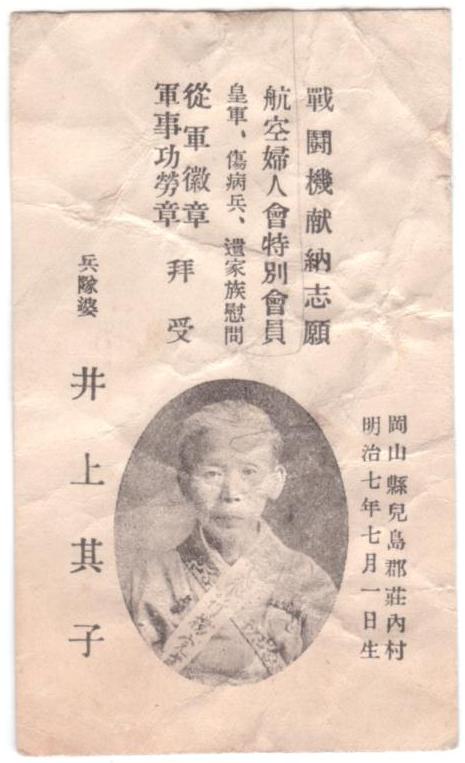 戰鬪機献納志願
航空婦人會特別會員
皇軍、傷病兵、遺家族慰問
從軍徽章
軍事功勞章
拜受
兵隊婆
井上其子
岡山縣兒島郡莊內村
明治七年七月一日生